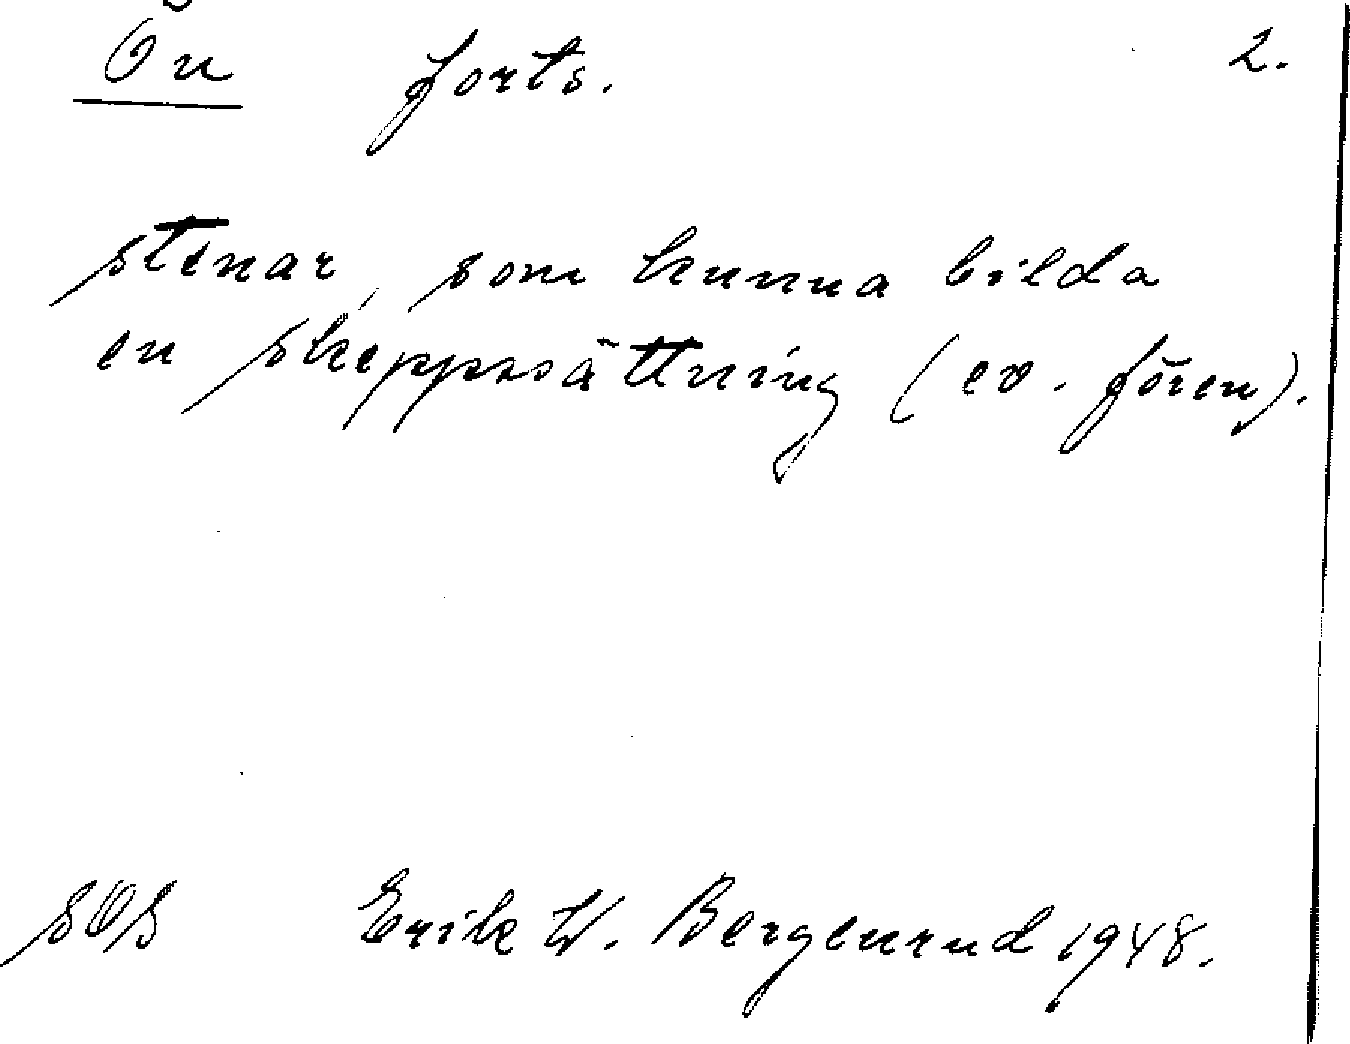 Ön forts. 2.
stenar, som kunna bilda
en skeppssättning (ev. fören).
SOS Erik W. Bergenrud 1948.